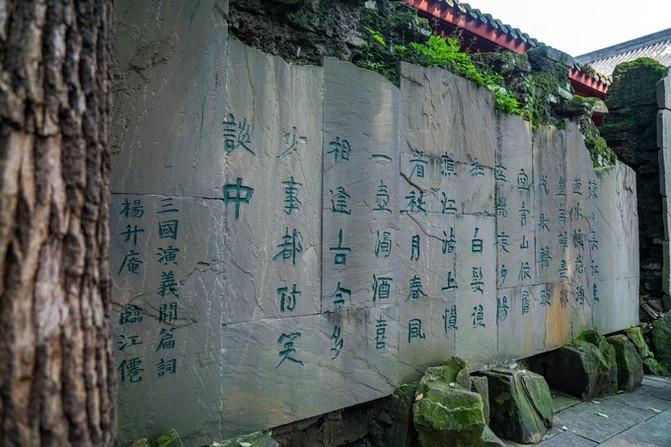 滾滾長江東
逝水浪花淘
盡英雄是非
成敗轉頭
空青山依舊
在幾度夕陽
紅白髮漁
樵江渚上慣
看秋月春風
一壺濁酒喜
相逢古今多
少事都付笑
談中
三國演義開篇詞
楊升庵 臨江僊